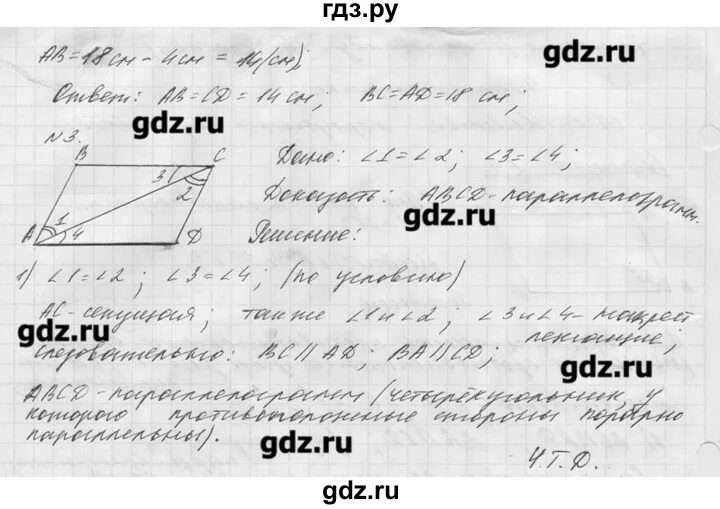 гдз.ру
AB=18см - 4см = 14(см);
gdz.ru
Ответ: AB=CD=14см; BC=AD=18см;
gdz.ru
№3.
B
C
3
2
A
1
4
D
Дано: ∠1=∠2; ∠3=∠4;
Доказать: ABCD-параллелограмм.
gdz.ru
Решение:
1) ∠1=∠2; ∠3=∠4; (по условию)
AC-секущая; так же ∠1и∠2; ∠3и∠4-накрест
gdz.ru
лежащие;
Следовательно: BC∥AD; BA∥CD;
gdz.ru
ABCD-параллелограмм (четырёхугольник, у
которого противоположные стороны попарно
параллельны).
gdz.ru
Ч.Т.Д.
gdz.ru